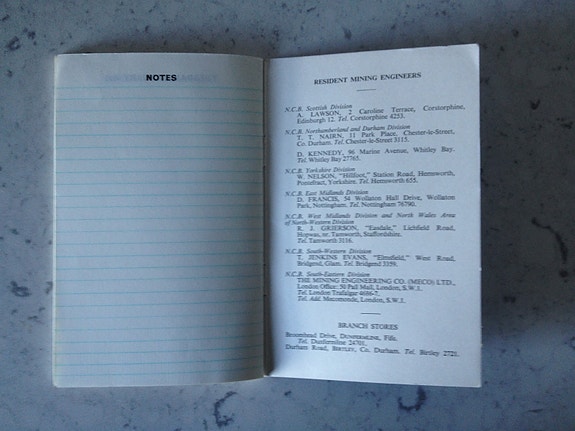 NOTES
RESIDENT MINING ENGINEERS
N.C.B. Scottish Division
A. LAWSON, 2 Caroline Terrace, Corstorphine,
Edinburgh 12. Tel. Corstorphine 4253.
N.C.B. Northumberland and Durham Division
T. T. NAIRN, 11 Park Place, Chester-le-Street,
Co. Durham. Tel. Chester-le-Street 3115.
D. KENNEDY, 96 Marine Avenue, Whitley Bay.
Tel. Whitley Bay 27765.
N.C.B. Yorkshire Division
W. NELSON, "Hillfoot," Station Road, Hemsworth,
Pontefract, Yorkshire. Tel. Hemsworth 655.
N.C.B. East Midlands Division
D. FRANCIS, 54 Wollaton Hall Drive, Wollaton
Park, Nottingham. Tel. Nottingham 76790.
N.C.B. West Midlands Division and North Wales Area
of North-Western Division
R. J. GRIERSON, "Easdale," Lichfield Road,
Hopwas, nr. Tamworth, Staffordshire.
Tel. Tamworth 3116.
N.C.B. South-Western Division
T. JENKINS EVANS, "Elmsfield," West Road,
Bridgend, Glam. Tel. Bridgend 3359.
N.C.B. South-Eastern Division
THE MINING ENGINEERING CO. (MECO) LTD.,
London Office: 50 Pall Mall, London, S.W.1.
Tel. London Trafalgar 4686-7.
Tel. Add. Mecomonde, London, S.W.1.
BRANCH STORES
Broomhead Drive, DUNFERMLINE, Fife.
Tel. Dunfermline 24701.
Durham Road, BIRTLEY, Co. Durham. Tel. Birtley 2721.